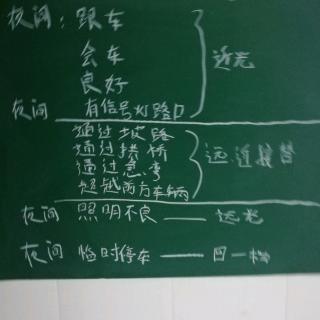 夜间：跟车
会车
良好
近光
夜间 有信号灯路口
通过坡路
通过拱桥
通过急弯
超越前方车辆
远近
夜间 照明不良——远光
夜间 临时停车——